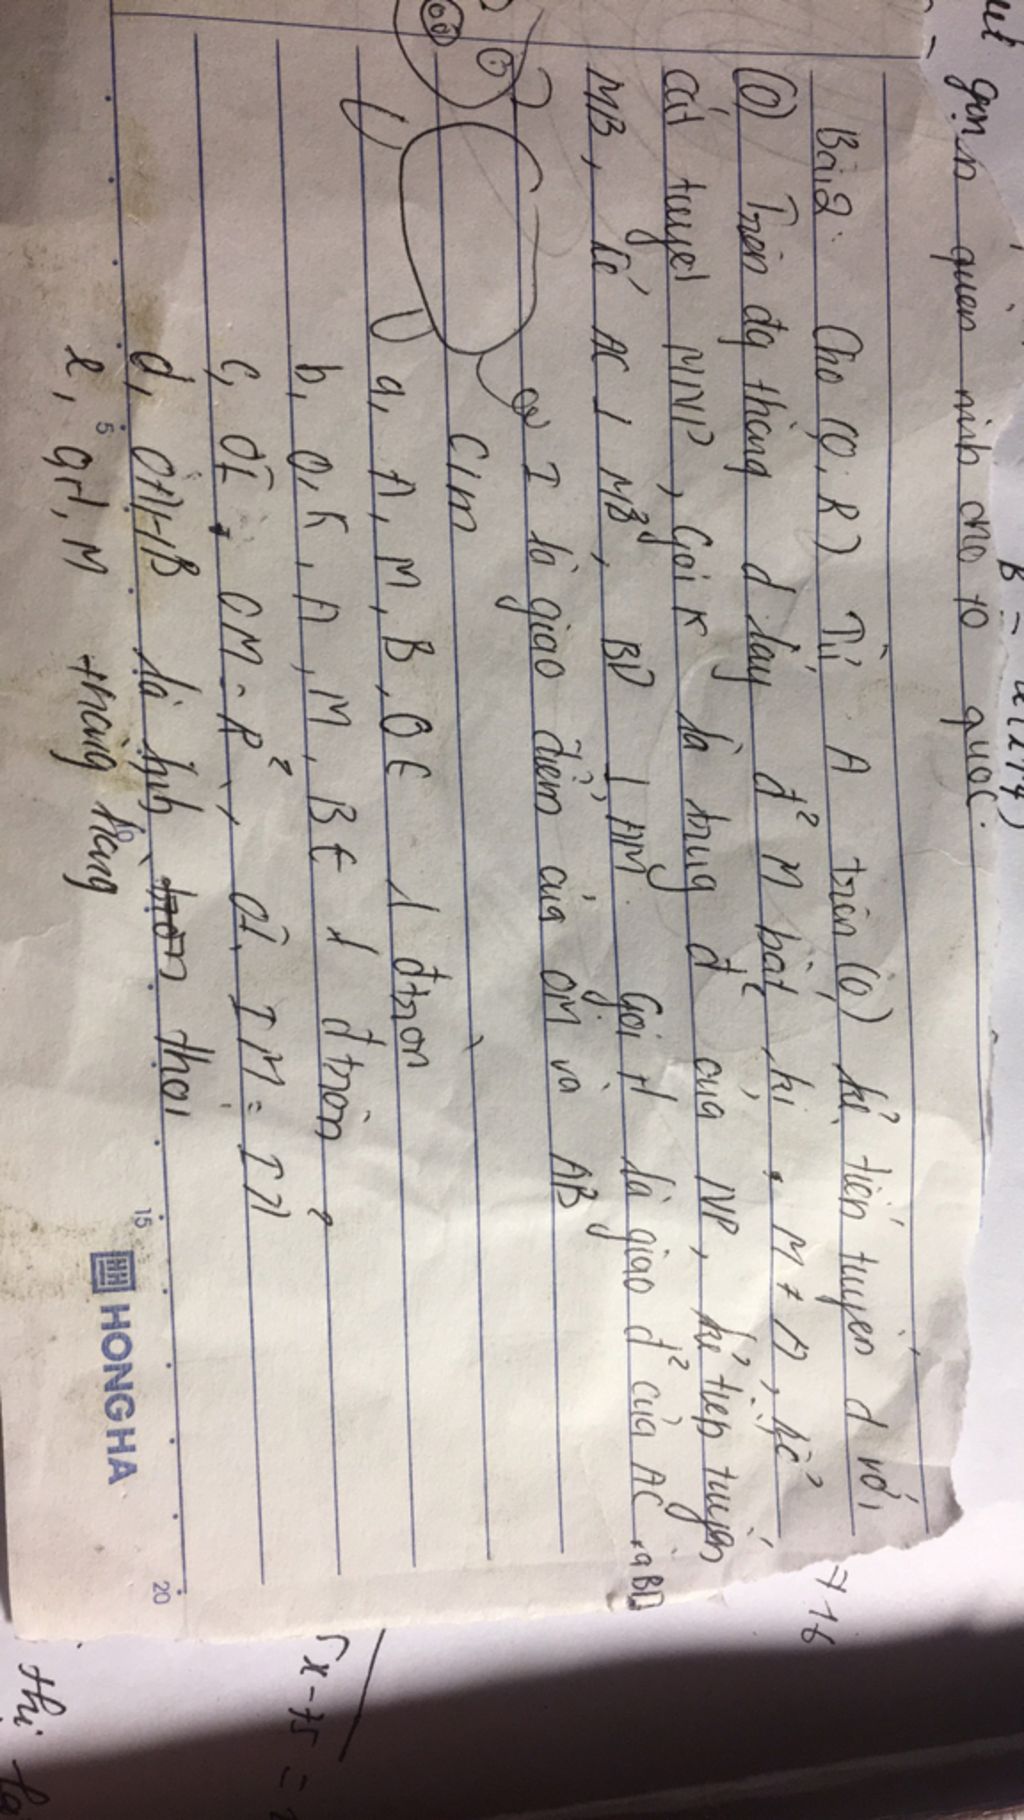 gọn quân mình cho tổ quốc.
Bài 2: Cho (O, R) Từ A trên (O) kẻ tiến tuyến d với
(O) Trên đg thẳng d lấy đ² M bất kì, M ≠ A, kẻ
cát tuyế MNP, Gọi K là trug đ² của NP, kẻ tiếp tuyến
MB, kẻ AC ⊥ MB, BD ⊥ AM. Gọi H là giao đ² của AC và BD
I là giao điểm của OM và AB
C/m
a, A, M, B, O ∈ 1 đtròn
b, O, K, A, M, B ∈ 1 đtròn
c, OI . OM = R², OI. IM = IA²
d, OAHB là hình thoi
e, O, H, M thẳng hàng
5
10
15
20
HONG HA
B =
7 16
√x - 75 =
thì